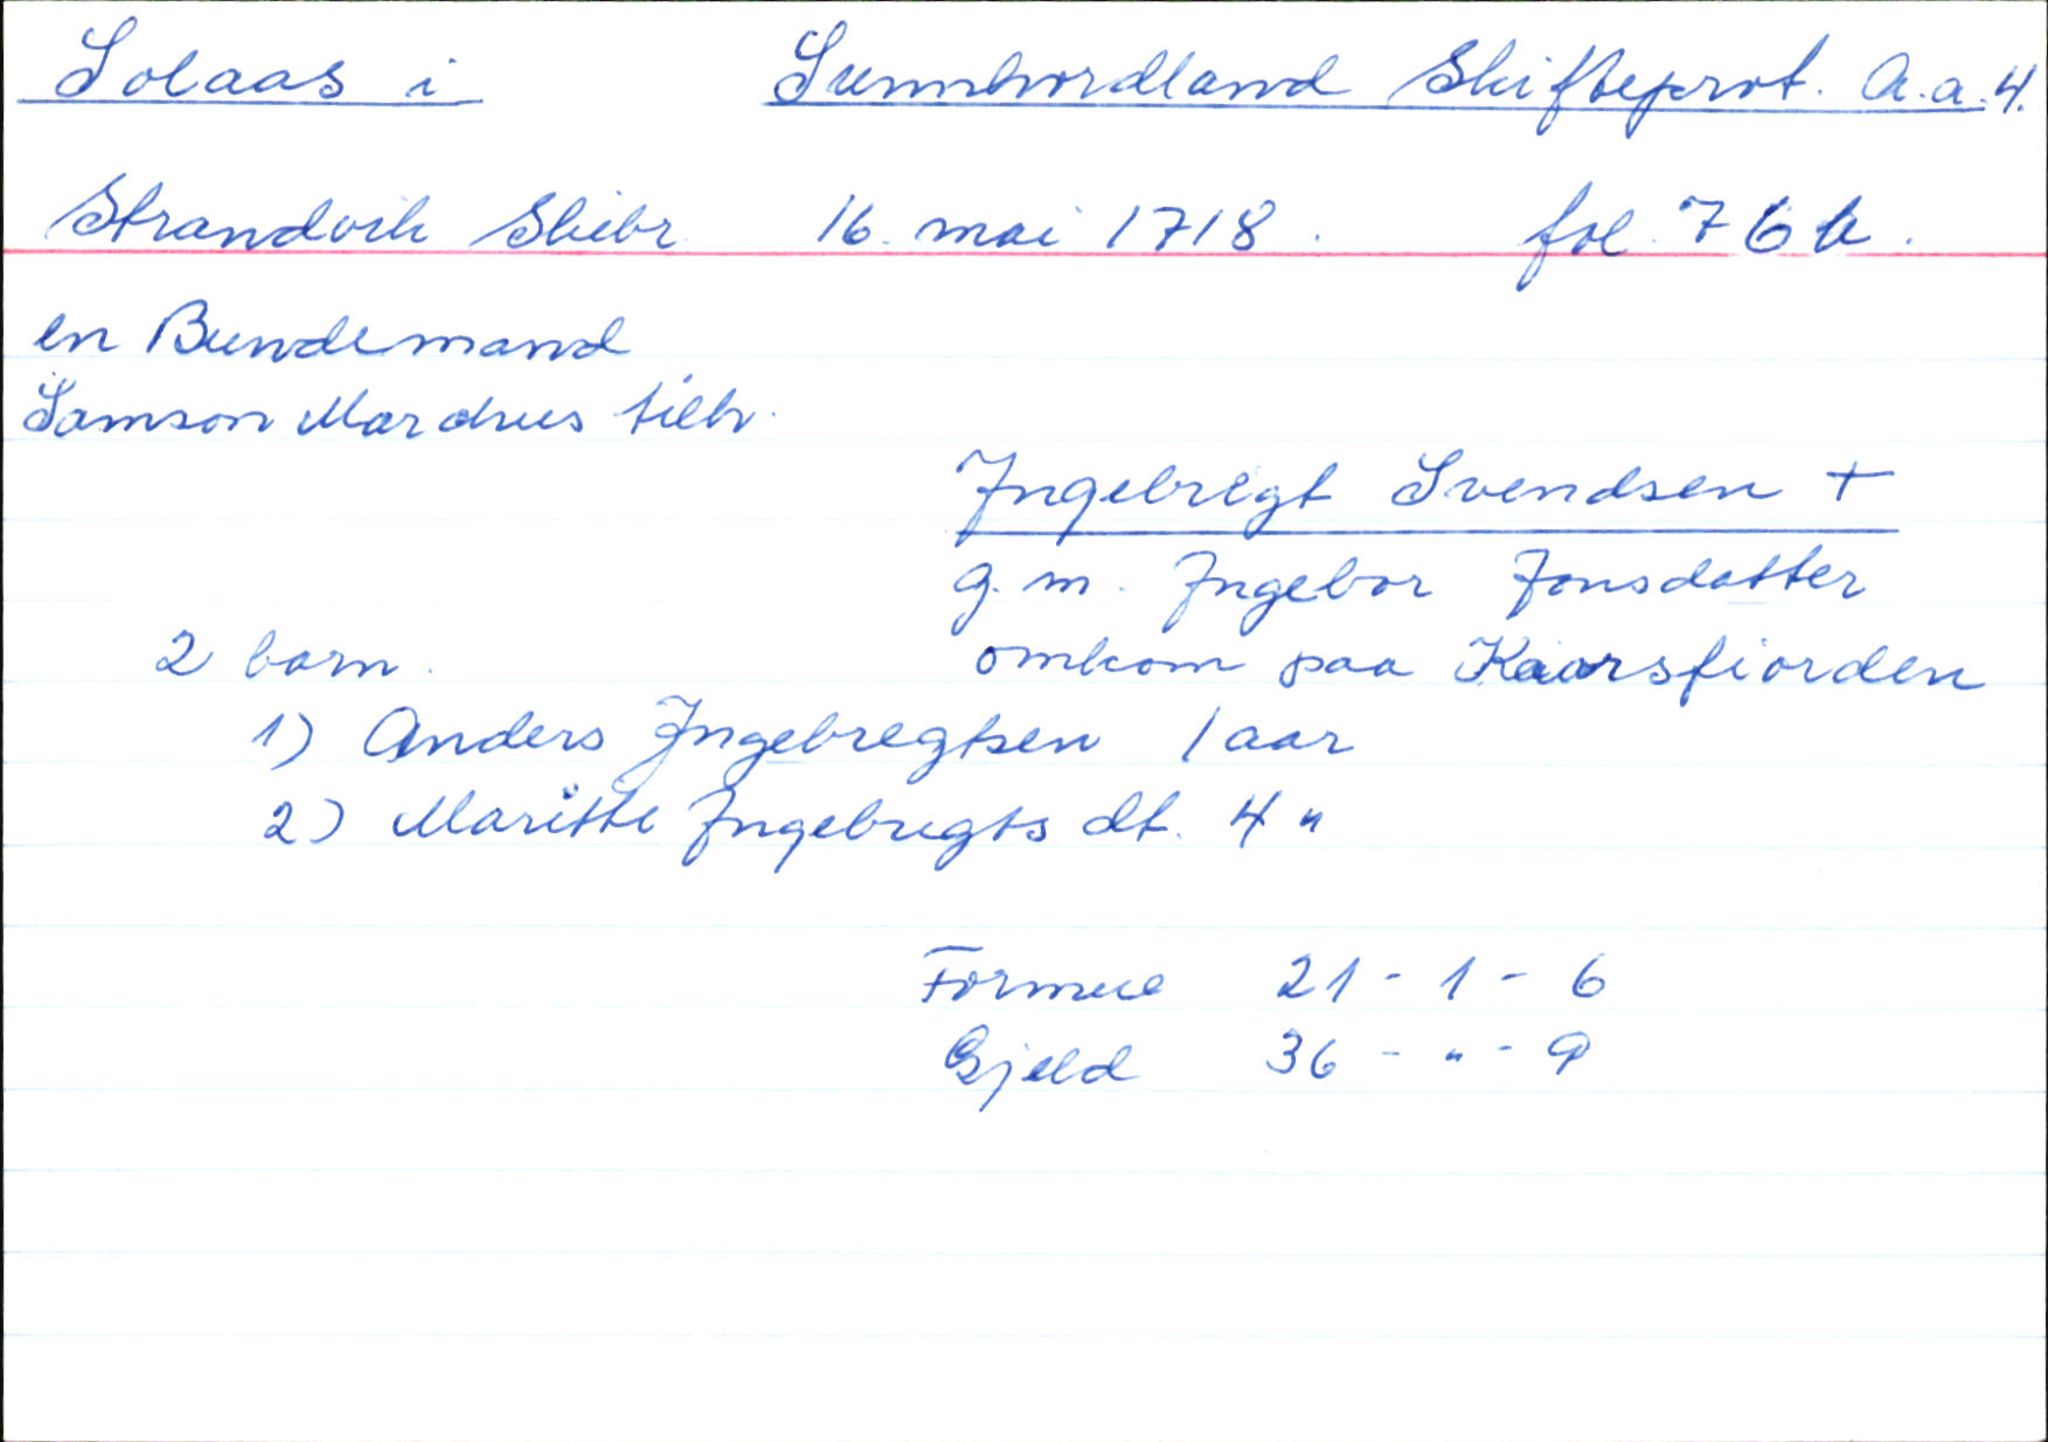 Solaas i Sunnhordland Skifteprot. A.a.4.
Strandvik Skibr. 16. mai 1718. fol. 76 b.
en Bundemand
Samson Mardhus tilh.
Ingebrigt Svendsen +
g. m. Ingebor Jonsdatter
2 barn. omkom paa Korsfiorden
1) Anders Ingebregtsen 1 aar
2) Maritte Ingebregts dt. 4 "
Formue 21 - 1 - 6
Gjeld 36 - " - 9